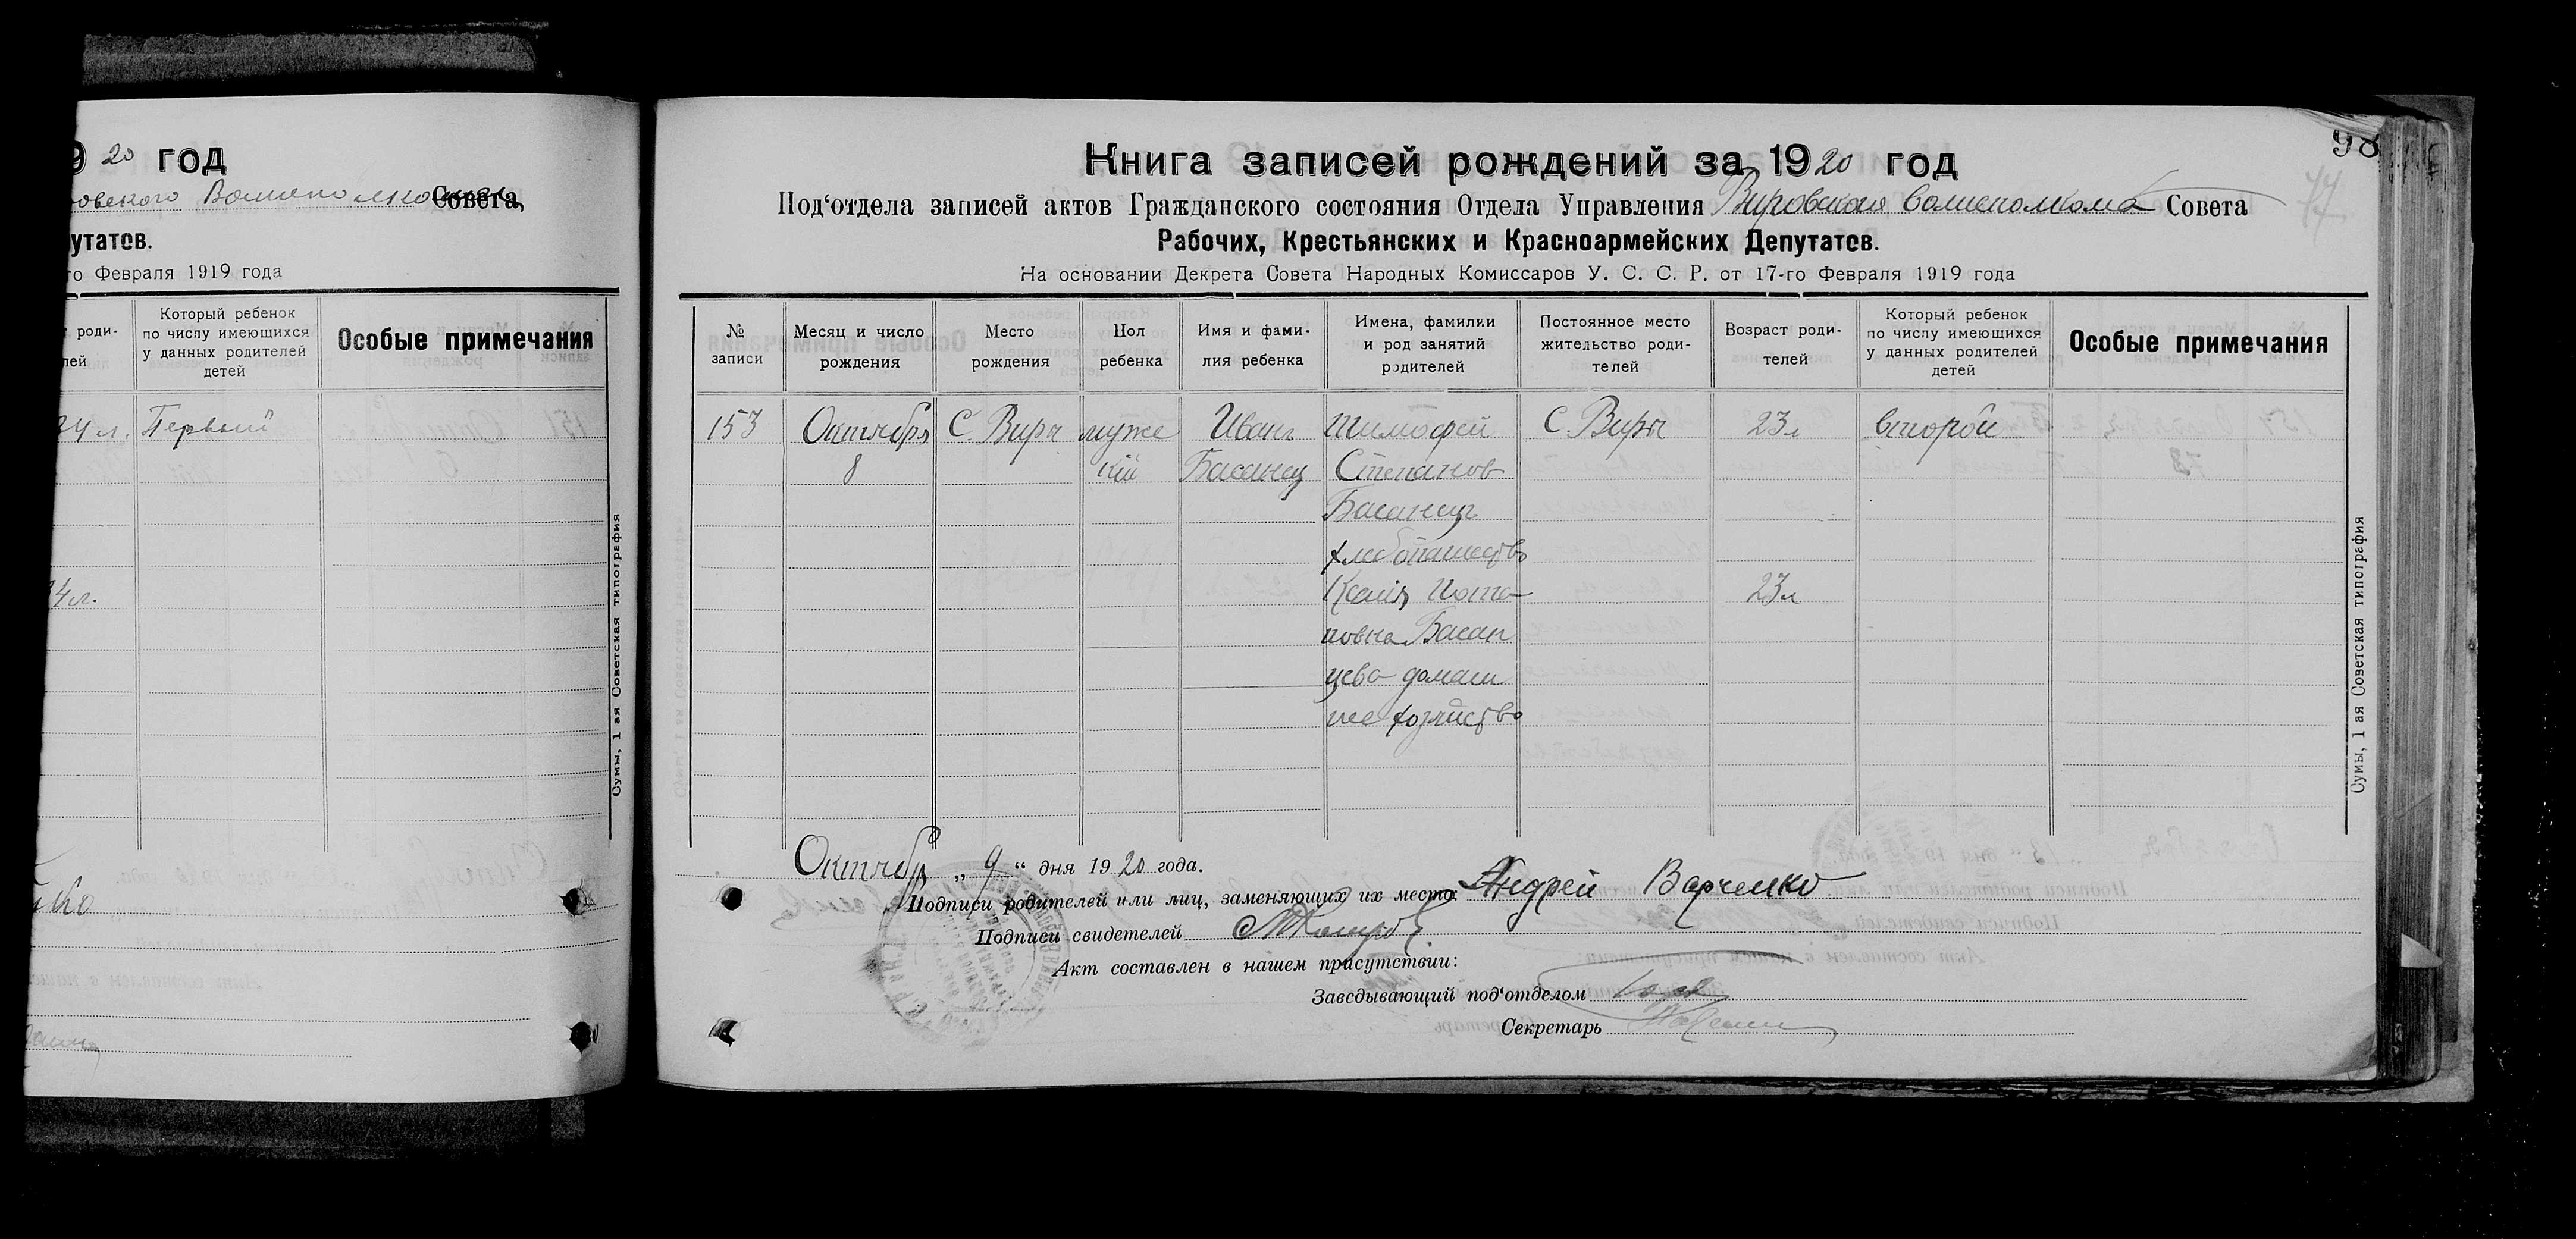 9 20 год
овского Волисполкома Совета,
утатов.
го Февраля 1919 года
роди-
лей
Который ребенок
по числу имеющихся
у данных родителей
детей
Особые примечания
24 л. Первый
24 л.
Сумы, 1 ая Советская типография
98
Книга записей рождений за 1920 год
Под‘отдела записей актов Гражданского состояния Отдела Управления Вировская волисполкома Совета
77
Рабочих, Крестьянских и Красноармейских Депутатов.
На основании Декрета Совета Народных Комиссаров У. С. С. Р. от 17-го Февраля 1919 года
№
записи
Месяц и число
рождения
Место
рождения
Пол
ребенка
Имя и фами-
лия ребенка
Имена, фамилки
и род занятий
родителей
Постоянное место
жительство роди-
телей
Возраст роди-
телей
Который ребенок
по числу имеющихся
у данных родителей
детей
Особые примечания
153 Октября С Виры мужс Иванъ Тимофей С Виры 23л второй
8 кій Басанец Степанов
Басанецъ
хлебопашество
Ксенія Пота- 23л
повна Басан
цева домаш
нее хозяйство
Сумы, 1 ая Советская типография
Октябр „ 9 “ дня 1920 года.
Подписи родителей или лиц, заменяющих их место: Андрей Варченко
Подписи свидетелей
Акт составлен в нашем присутствии:
Заведывающий под‘отделом
Секретарь